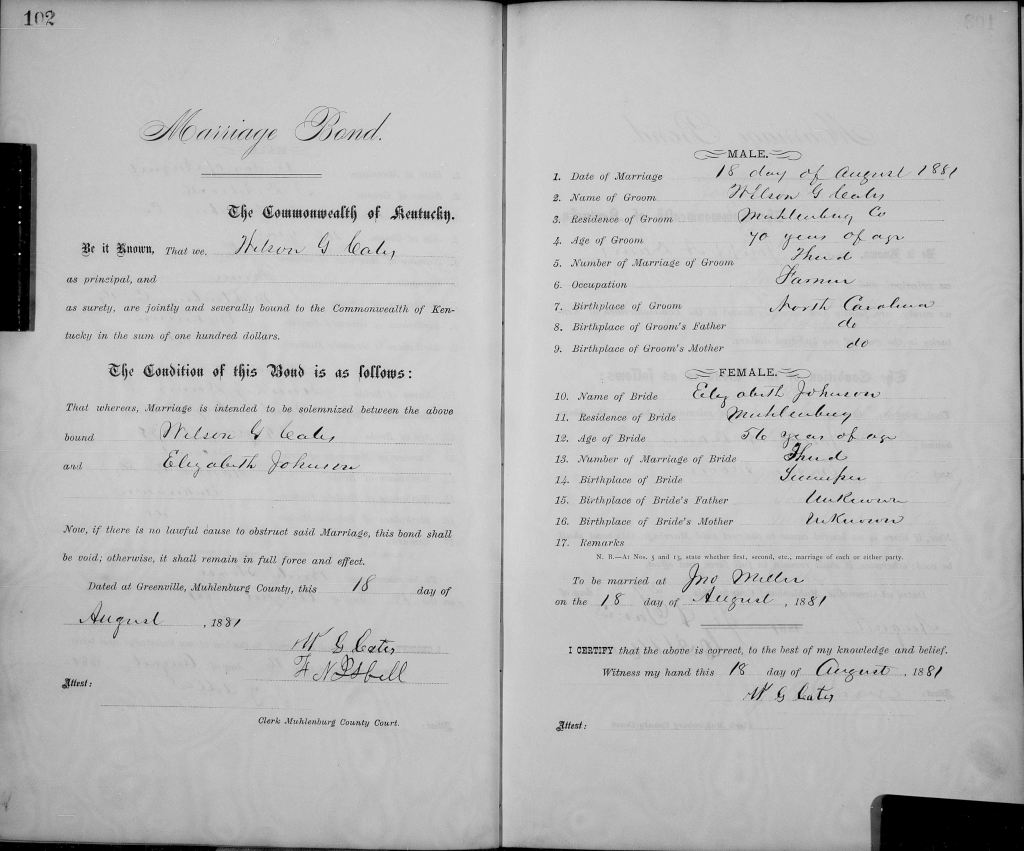 102
Marriage Bond.
The Commonwealth of Kentucky.
Be it Known, That we, Wilson G Cates
as principal, and
as surety, are jointly and severally bound to the Commonwealth of Ken-
tucky in the sum of one hundred dollars.
The Condition of this Bond is as follows:
That whereas, Marriage is intended to be solemnized between the above
bound Wilson G Cates
and Elizabeth Johnson
Now, if there is no lawful cause to obstruct said Marriage, this bond shall
be void; otherwise, it shall remain in full force and effect.
Dated at Greenville, Muhlenburg County, this 18 day of
August, 1881
W G Cates
F N Isbell
Attest:
Clerk Muhlenburg County Court.
MALE.
1. Date of Marriage 18 day of August 1881
2. Name of Groom Wilson G Cates
3. Residence of Groom Muhlenburg Co
4. Age of Groom 70 years of age
5. Number of Marriage of Groom Third
6. Occupation Farmer
7. Birthplace of Groom North Carolina
8. Birthplace of Groom's Father do
9. Birthplace of Groom's Mother do
FEMALE.
10. Name of Bride Elizabeth Johnson
11. Residence of Bride Muhlenburg
12. Age of Bride 56 years of age
13. Number of Marriage of Bride Third
14. Birthplace of Bride
15. Birthplace of Bride's Father Unknown
16. Birthplace of Bride's Mother Unknown
17. Remarks
N. B.—At Nos. 5 and 13, state whether first, second, etc., marriage of each or either party.
To be married at Jno Miller
on the 18 day of August, 1881
I CERTIFY that the above is correct, to the best of my knowledge and belief.
Witness my hand this 18 day of August, 1881
W G Cates
Attest: